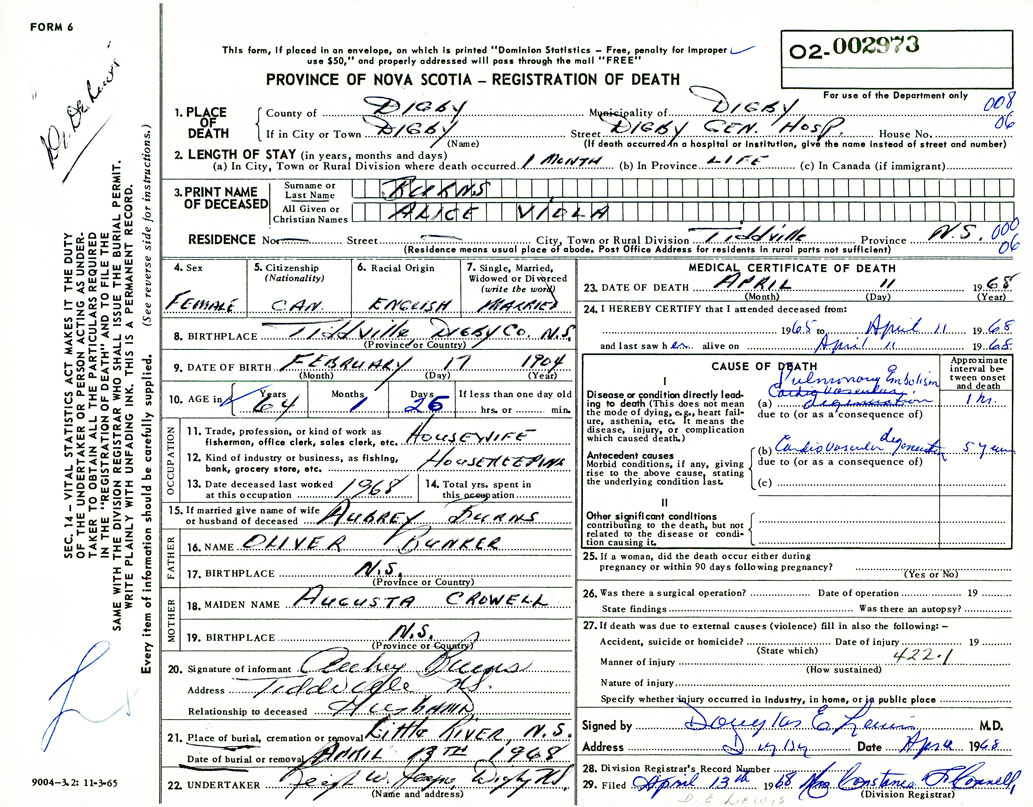 FORM 6
This form, if placed in an envelope, on which is printed "Dominion Statistics – Free, penalty for improper
use $50," and properly addressed will pass through the mail "FREE"
O2-002973
PROVINCE OF NOVA SCOTIA – REGISTRATION OF DEATH
For use of the Department only
1. PLACE OF DEATH
County of DIGBY Municipality of DIGBY 008
If in City or Town DIGBY Street DIGBY GEN. HOSP. House No. 06
(Name) (If death occurred in a hospital or institution, give the name instead of street and number)
2. LENGTH OF STAY (in years, months and days)
(a) In City, Town or Rural Division where death occurred 1 MONTH (b) In Province LIFE (c) In Canada (if immigrant)
3. PRINT NAME OF DECEASED
Surname or Last Name BURNS
All Given or Christian Names ALICE VIOLA
RESIDENCE No. Street City, Town or Rural Division Tiddville Province N.S. 000
(Residence means usual place of abode. Post Office Address for residents in rural parts not sufficient) 06
SEC. 14 – VITAL STATISTICS ACT MAKES IT THE DUTY
OF THE UNDERTAKER OR PERSON ACTING AS UNDER-
TAKER TO OBTAIN ALL THE PARTICULARS REQUIRED
IN THE "REGISTRATION OF DEATH" AND TO FILE THE
SAME WITH THE DIVISION REGISTRAR WHO SHALL ISSUE THE BURIAL PERMIT.
WRITE PLAINLY WITH UNFADING INK. THIS IS A PERMANENT RECORD.
Every item of information should be carefully supplied. (See reverse side for instructions.)
4. Sex FEMALE
5. Citizenship (Nationality) CAN.
6. Racial Origin ENGLISH
7. Single, Married, Widowed or Divorced (write the word) MARRIED
8. BIRTHPLACE Tiddville DIGBY Co. N.S.
(Province or Country)
9. DATE OF BIRTH FEBRUARY 17 1904
(Month) (Day) (Year)
10. AGE in Years 64 Months 1 Days 25 If less than one day old hrs. or min.
OCCUPATION
11. Trade, profession, or kind of work as
fisherman, office clerk, sales clerk, etc. HOUSEWIFE
12. Kind of industry or business, as fishing,
bank, grocery store, etc. HOUSEKEEPING
13. Date deceased last worked
at this occupation 1968
14. Total yrs. spent in
this occupation
15. If married give name of wife
or husband of deceased AUBREY BURNS
FATHER
16. NAME OLIVER BUNKER
17. BIRTHPLACE N.S.
(Province or Country)
MOTHER
18. MAIDEN NAME AUGUSTA CROWELL
19. BIRTHPLACE N.S.
(Province or Country)
20. Signature of informant Aubrey Burns
Address Tiddville NS.
Relationship to deceased Husband
21. Place of burial, cremation or removal Little River, N.S.
Date of burial or removal APRIL 13TH 1968
22. UNDERTAKER W.
(Name and address)
9004–3.2: 11-3-65
MEDICAL CERTIFICATE OF DEATH
23. DATE OF DEATH APRIL 11 1968
(Month) (Day) (Year)
24. I HEREBY CERTIFY that I attended deceased from:
1965 to April 11 1968
and last saw her alive on April 11 1968
CAUSE OF DEATH
Approximate interval between onset and death
I
Disease or condition directly lead-
ing to death (This does not mean
the mode of dying, e.g., heart fail-
ure, asthenia, etc. It means the
disease, injury, or complication
which caused death.)
Pulmonary Embolism
Cardio vascular
(a) degeneration 1 hr.
due to (or as a consequence of)
Antecedent causes
Morbid conditions, if any, giving
rise to the above cause, stating
the underlying condition last.
(b) Cardio Vascular degeneration 5 years
due to (or as a consequence of)
(c)
II
Other significant conditions
contributing to the death, but not
related to the disease or condi-
tion causing it.
25. If a woman, did the death occur either during
pregnancy or within 90 days following pregnancy?
(Yes or No)
26. Was there a surgical operation? Date of operation 19
State findings Was there an autopsy?
27. If death was due to external causes (violence) fill in also the following: –
Accident, suicide or homicide? Date of injury 19
(State which) 422.1
Manner of injury
(How sustained)
Nature of injury
Specify whether injury occurred in industry, in home, or in public place
Signed by Douglas E Lewis M.D.
Address Digby Date April 1968
28. Division Registrar's Record Number
29. Filed April 13th 1968 Mrs Constance F. Connell,
(Division Registrar)
D. E. LEWIS